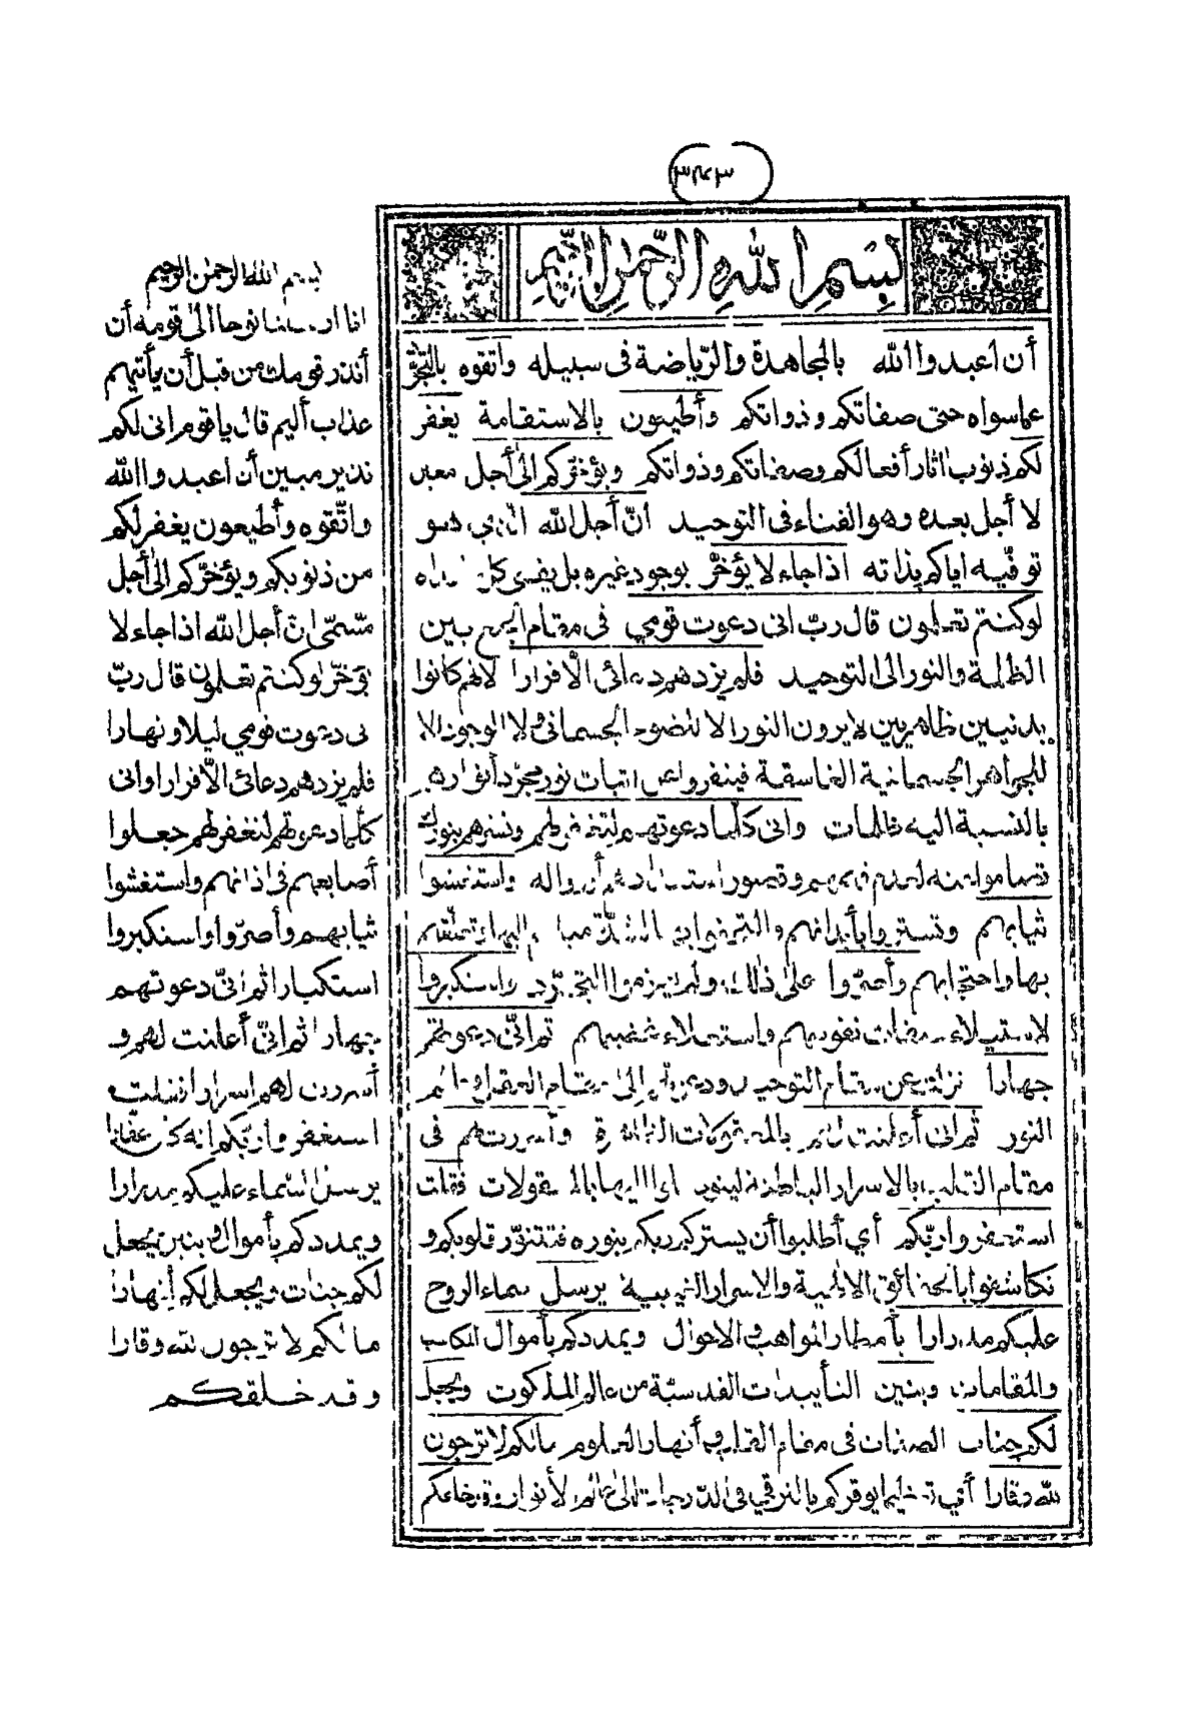 ٣٤٣
بسم الله الرحمن الرحيم
أن اعبدوا الله بالمجاهدة والرّياضة فى سبيله واتقوه بالتجرّد
عما سواه حتى صفاتكم وذواتكم وأطيعون بالاستقامة يغفر
لكم ذنوب اثار أفعالكم وصفاتكم وذواتكم ويؤخركم الى أجل معين
لا أجل بعده وهو الفناء فى التوحيد انّ أجل الله الذى هو
توفيه اياكم بذاته اذا جاء لا يؤخّر بوجود غيره بل يفنى كل
لو كنتم تعلمون قال ربّ انى دعوت قومي فى مقام الجمع بين
الظلمة والنور الى التوحيد فلم يزدهم دعائى الّا فرارا لانهم كانوا
بدنيين ظاهريين لا يرون النور الا للضوء الجسمانى ولا الوجود الا
للجواهر الجسمانية الغاسقة فينفروا عن اثبات نور مجرّد أنوارهم
بالنسبة اليه ظلمات وانى كلما دعوتهم لتغفر لهم وتسترهم بنورك
تصاموا عنه لعدم فهمهم وقصور استعدادهم أو زواله واستغشوا
ثيابهم وتستروا بأبدانهم
بها واحتجابهم وأصرّوا على ذلك ولم يعزموا التجرّد واستكبروا
لاستيلاء صفات نفوسهم واستعلاء غضبهم ثم انّى دعوتهم
جهارا نزلت عن مقام التوحيد ودعوتهم الى مقام العقل وعالم
النور ثم انى أعلنت لهم بالمعقولات الظاهرة وأسررت لهم فى
مقام القلب بالاسرار الباطنة بالمعقولات فقلت
استغفروا ربّكم أي أطلبوا أن يستركم ربكم بنوره فتتنوّر قلوبكم و
تكاشفوا بالحقائق الالهية والاسرار الغيبية يرسل سماء الروح
عليكم مدرارا بأمطار المواهب والاحوال ويمددكم بأموال المكاسب
والمقامات وبنين التأييدات القدسيّة من عالم الملكوت ويجعل
لكم جنات الصفات فى مقام القلب وأنهار العلوم مالكم لا ترجون
لله وقارا أي تعظيما يوقركم بالترقي فى الدرجات الى عالم الأنوار وقد خلقكم
بسم الله الرحمن الرحيم
انا ارسلنا نوحا الى قومه أن
أنذر قومك من قبل أن يأتيهم
عذاب أليم قال يا قوم انى لكم
نذير مبين أن اعبدوا الله
واتّقوه وأطيعون يغفر لكم
من ذنوبكم ويؤخّركم الى أجل
مسمّى انّ أجل الله اذا جاء لا
يؤخّر لو كنتم تعلمون قال ربّ
انى دعوت قومي ليلا ونهارا
فلم يزدهم دعائى الّا فرارا وانى
كلّما دعوتهم لتغفر لهم جعلوا
أصابعهم فى اذانهم واستغشوا
ثيابهم وأصرّوا واستكبروا
استكبارا ثم انّى دعوتهم
جهارا ثم انّى أعلنت لهم و
أسررت لهم اسرارا فقلت
استغفروا ربّكم انه كان غفّارا
يرسل السّماء عليكم مدرارا
ويمددكم بأموال وبنين ويجعل
لكم جنات ويجعل لكم أنهارا
مالكم لا ترجون لله وقارا
وقد خلقكم